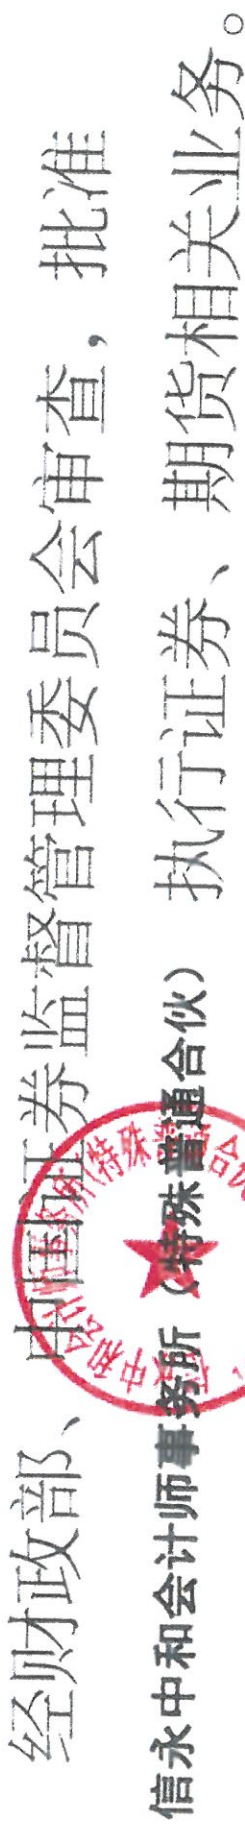 经财政部、中国证券监督管理委员会审查，批准
信永中和会计师事务所（特殊普通合伙） 执行证券、期货相关业务。